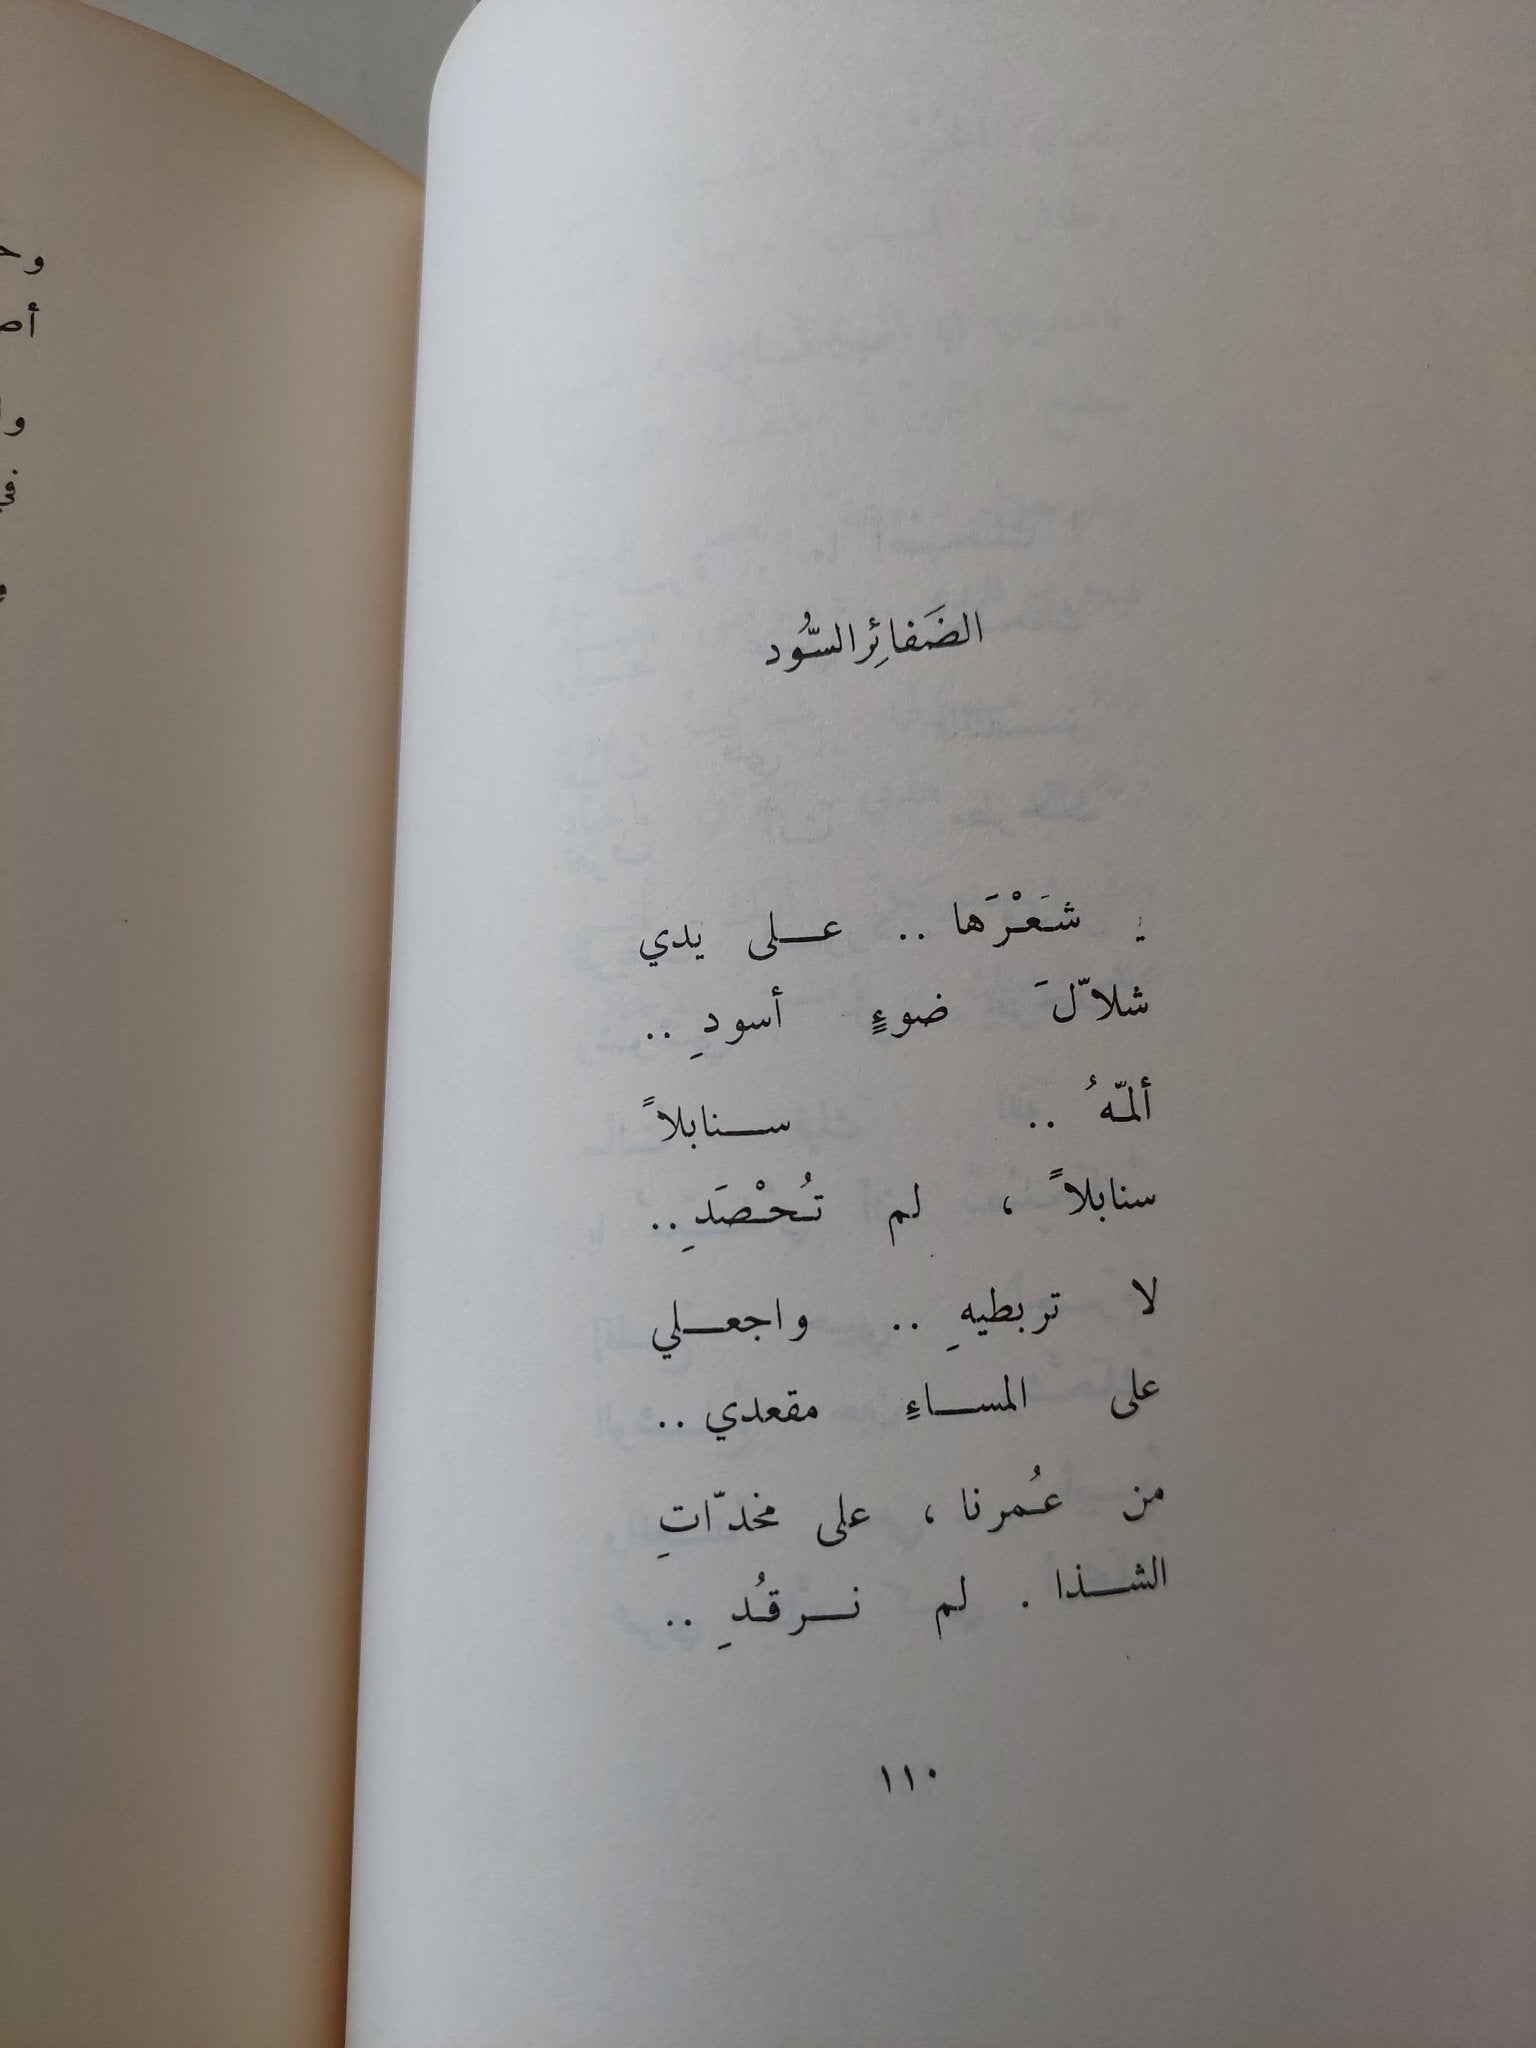 الضَفائِر السُّود
شَعْرَها .. على يدي
شلاّلَ ضوءٍ أسودِ ..
ألمّهُ .. سنابلاً
سنابلاً ، لم تُحْصَدِ ..
لا تربطيهِ .. واجعلي
على المساءِ مقعدي ..
من عُمرنا ، على مخدّاتِ
الشذا . لم نرقُدِ ..
١١٠